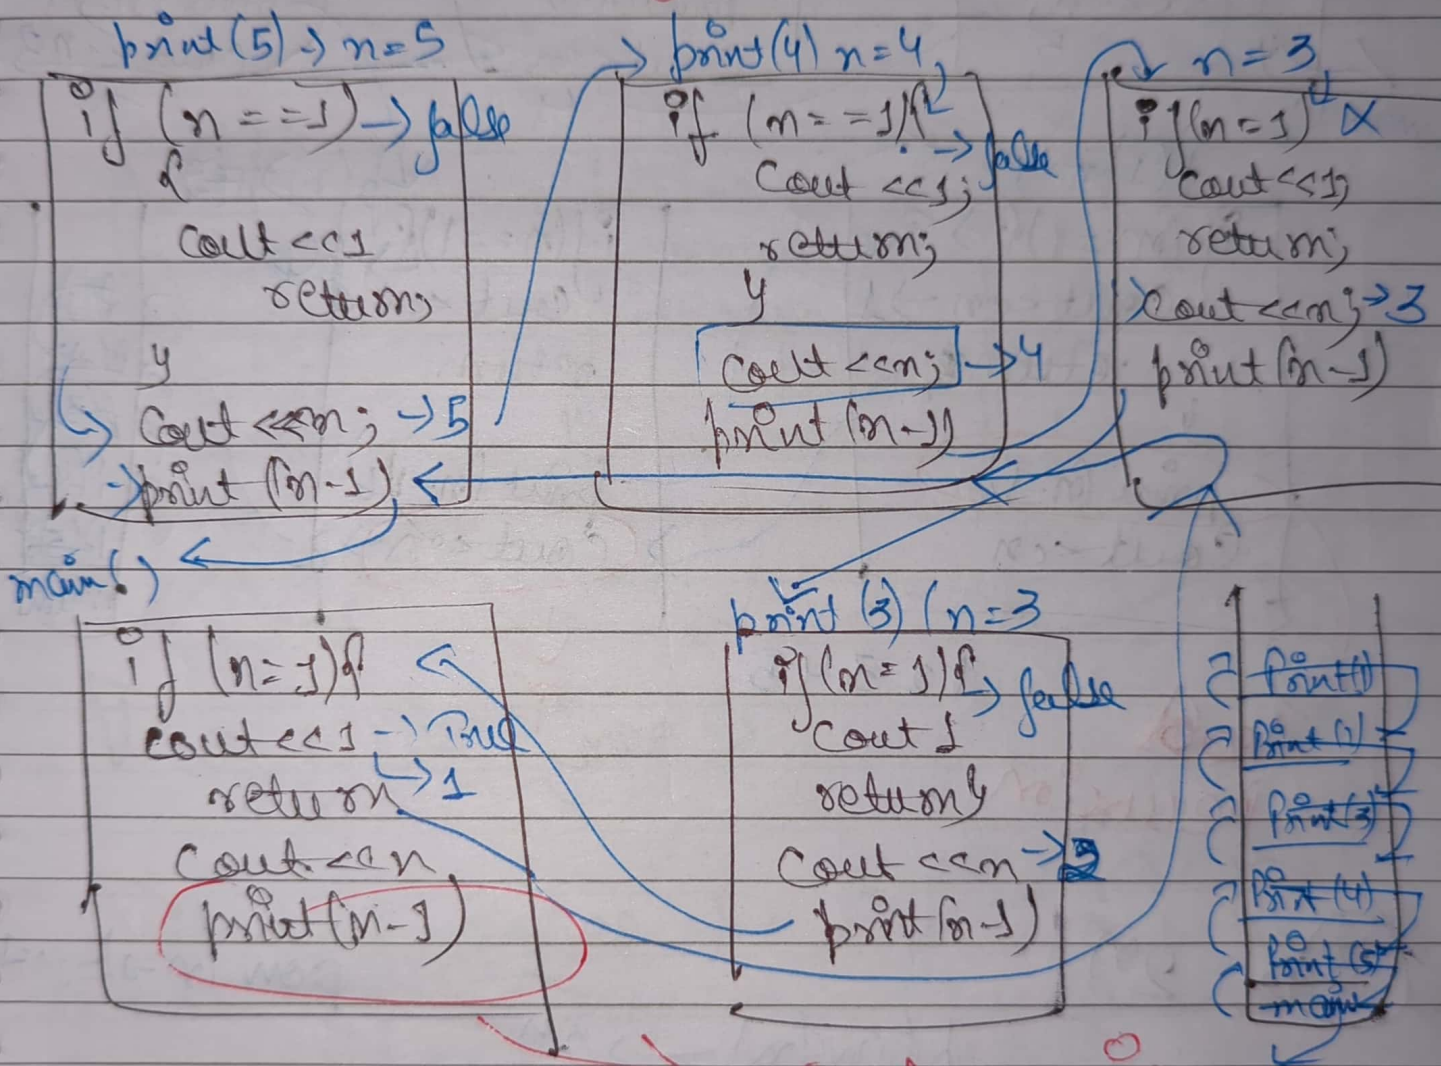 print(5) → n=5
if (n==1) → false
{
cout<<1
return;
}
cout<<n; → 5
→ print (n-1)
main()
print(4) n=4
if (n==1){
→ false
cout<<1;
return;
}
cout<<n; → 4
print (n-1)
n=3
if(n=1) x
cout<<1;
return;
cout<<n; → 3
print(n-1)
if (n=1){
cout<<1 → True
return → 1
cout<<n
print(n-1)
print (3) (n=3
if(n=1){ → false
cout 1
return}
cout<<n → 2
print(n-1)
Print(1)
Print (3)
Print (4)
Print (5)
main